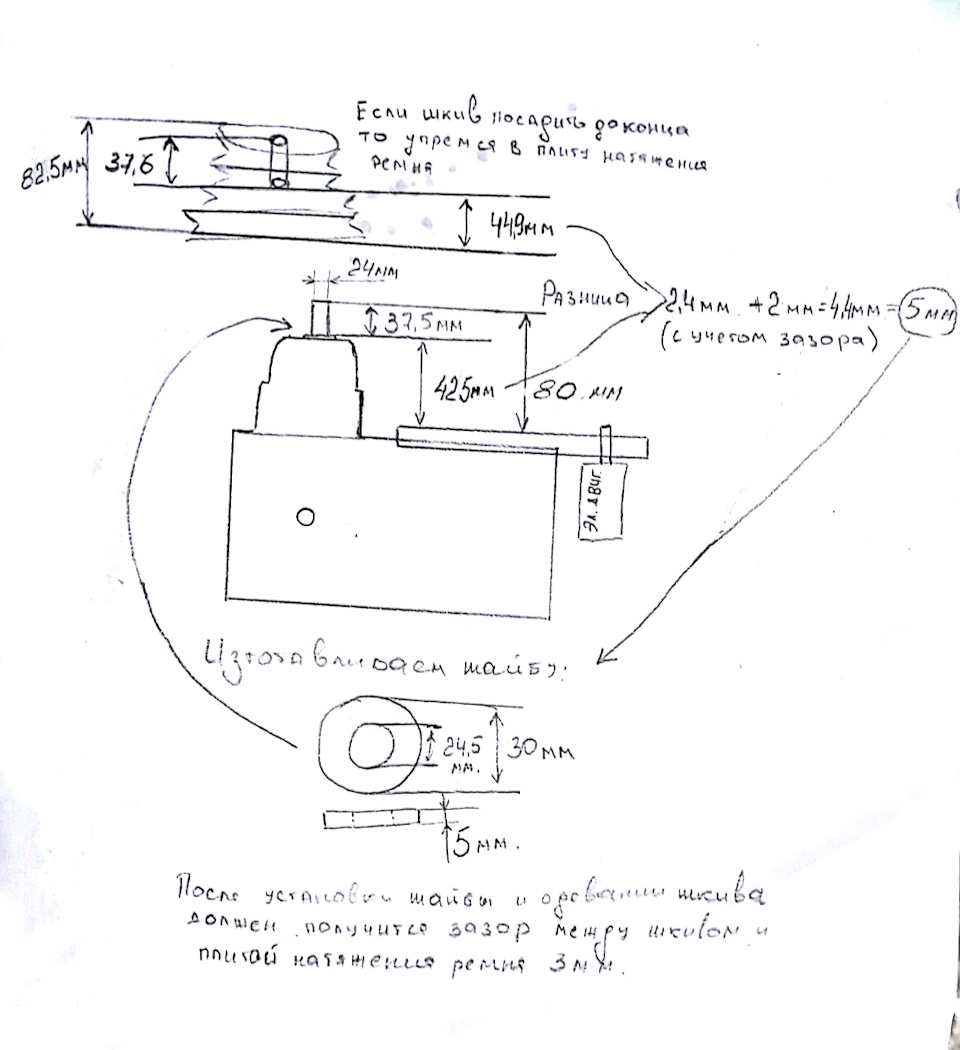 Если шкив посадить доконца
то упремся в плиту натяжения
ремня
82,5мм
37,6
44,9мм
24мм
Разница
2,4мм +2мм=4,4мм=5мм
(с учетом зазора)
37,5мм
425мм
80 мм
Эл. двиг.
Изготавливаем шайбу:
24,5
мм.
30мм
5мм.
После установки шайбы и одевании шкива
должен получится зазор между шкивом и
плитой натяжения ремня 3мм.